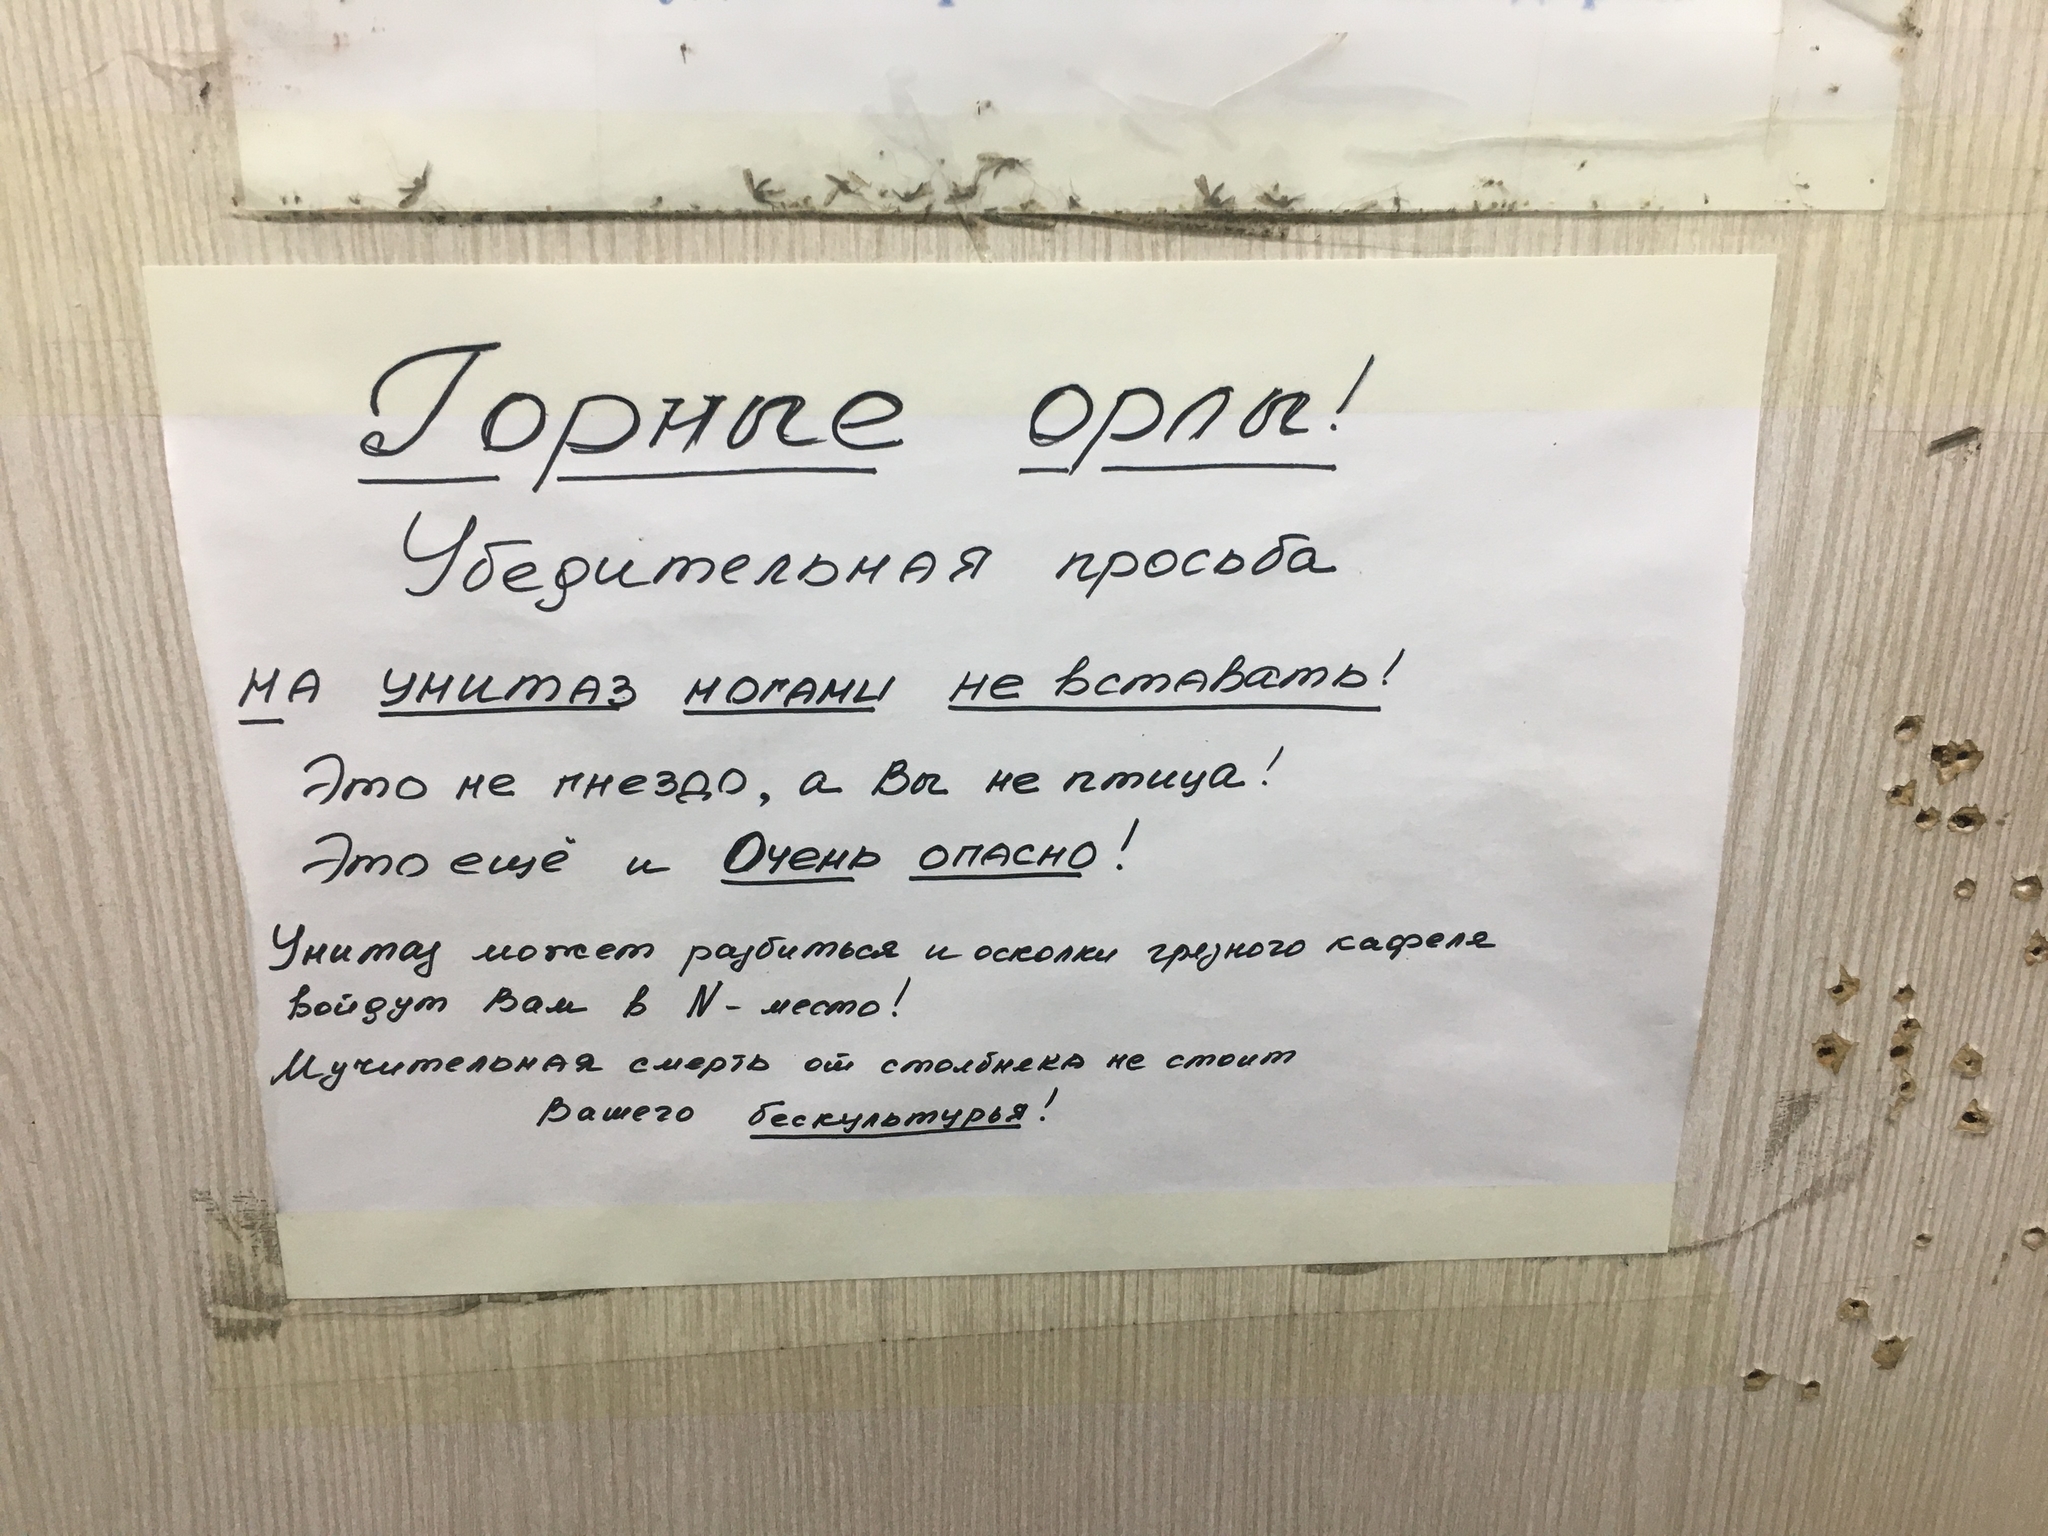 Горные орлы!
Убедительная просьба
на унитаз ногами не вставать!
Это не гнездо, а Вы не птица!
Это ещё и Очень опасно!
Унитаз может разбиться и осколки грязного кафеля
войдут Вам в N-место!
Мучительная смерть от столбняка не стоит
Вашего бескультурья!